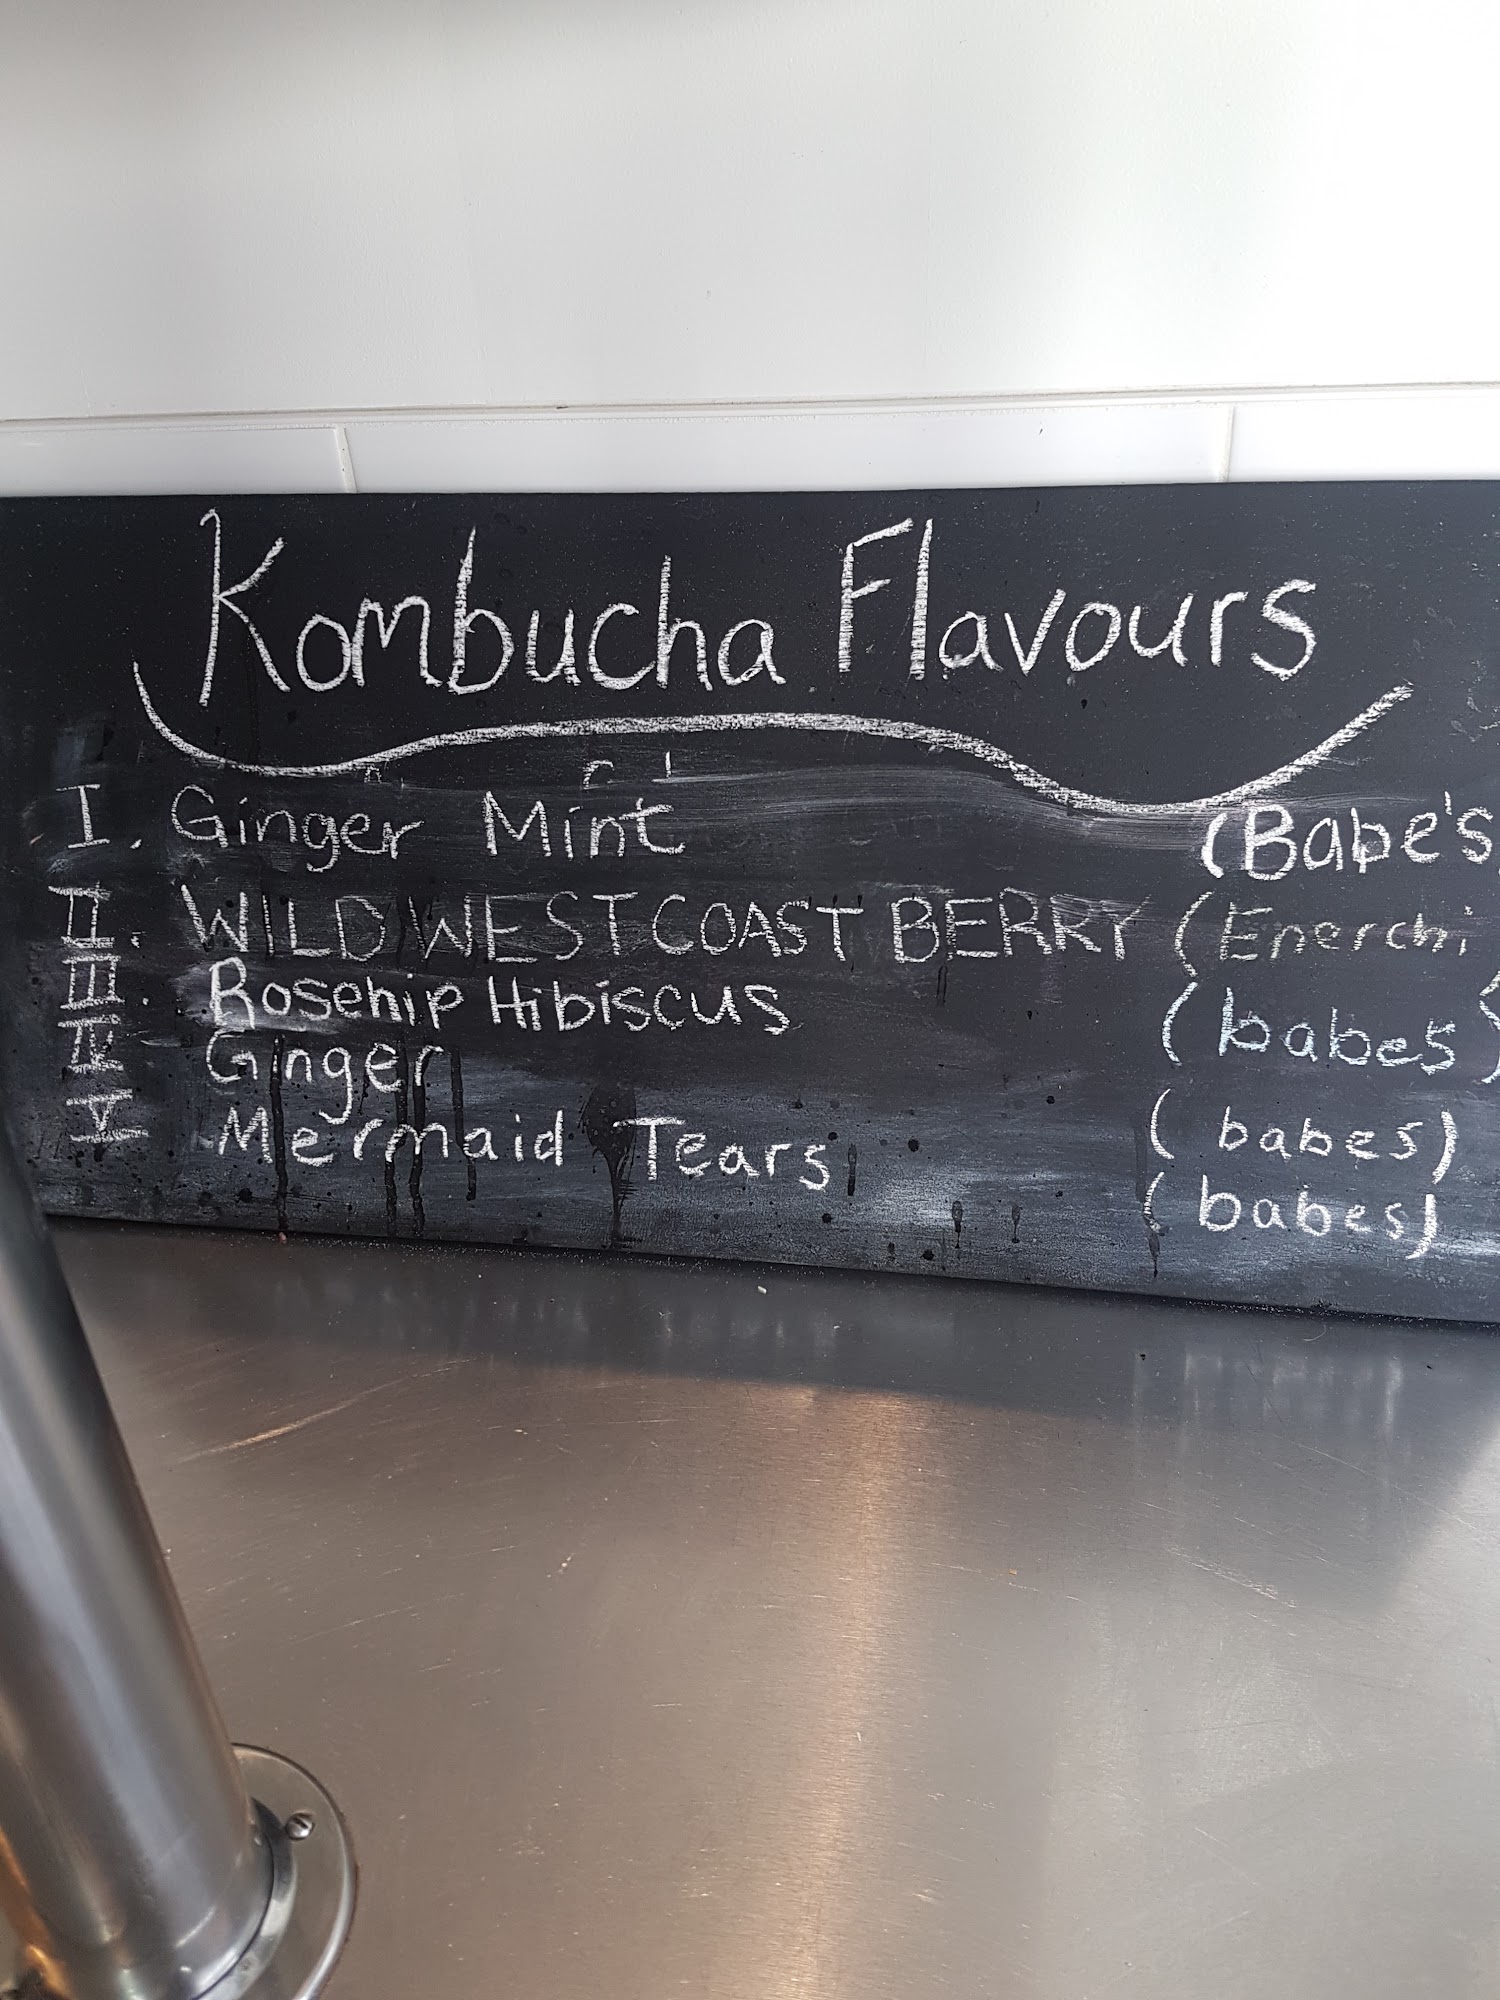 Kombucha Flavours
I. Ginger Mint (Babe's
II. WILD WEST COAST BERRY (Enerchi
III. Rosehip Hibiscus (babes)
IV Ginger (babes)
V Mermaid Tears (babes)